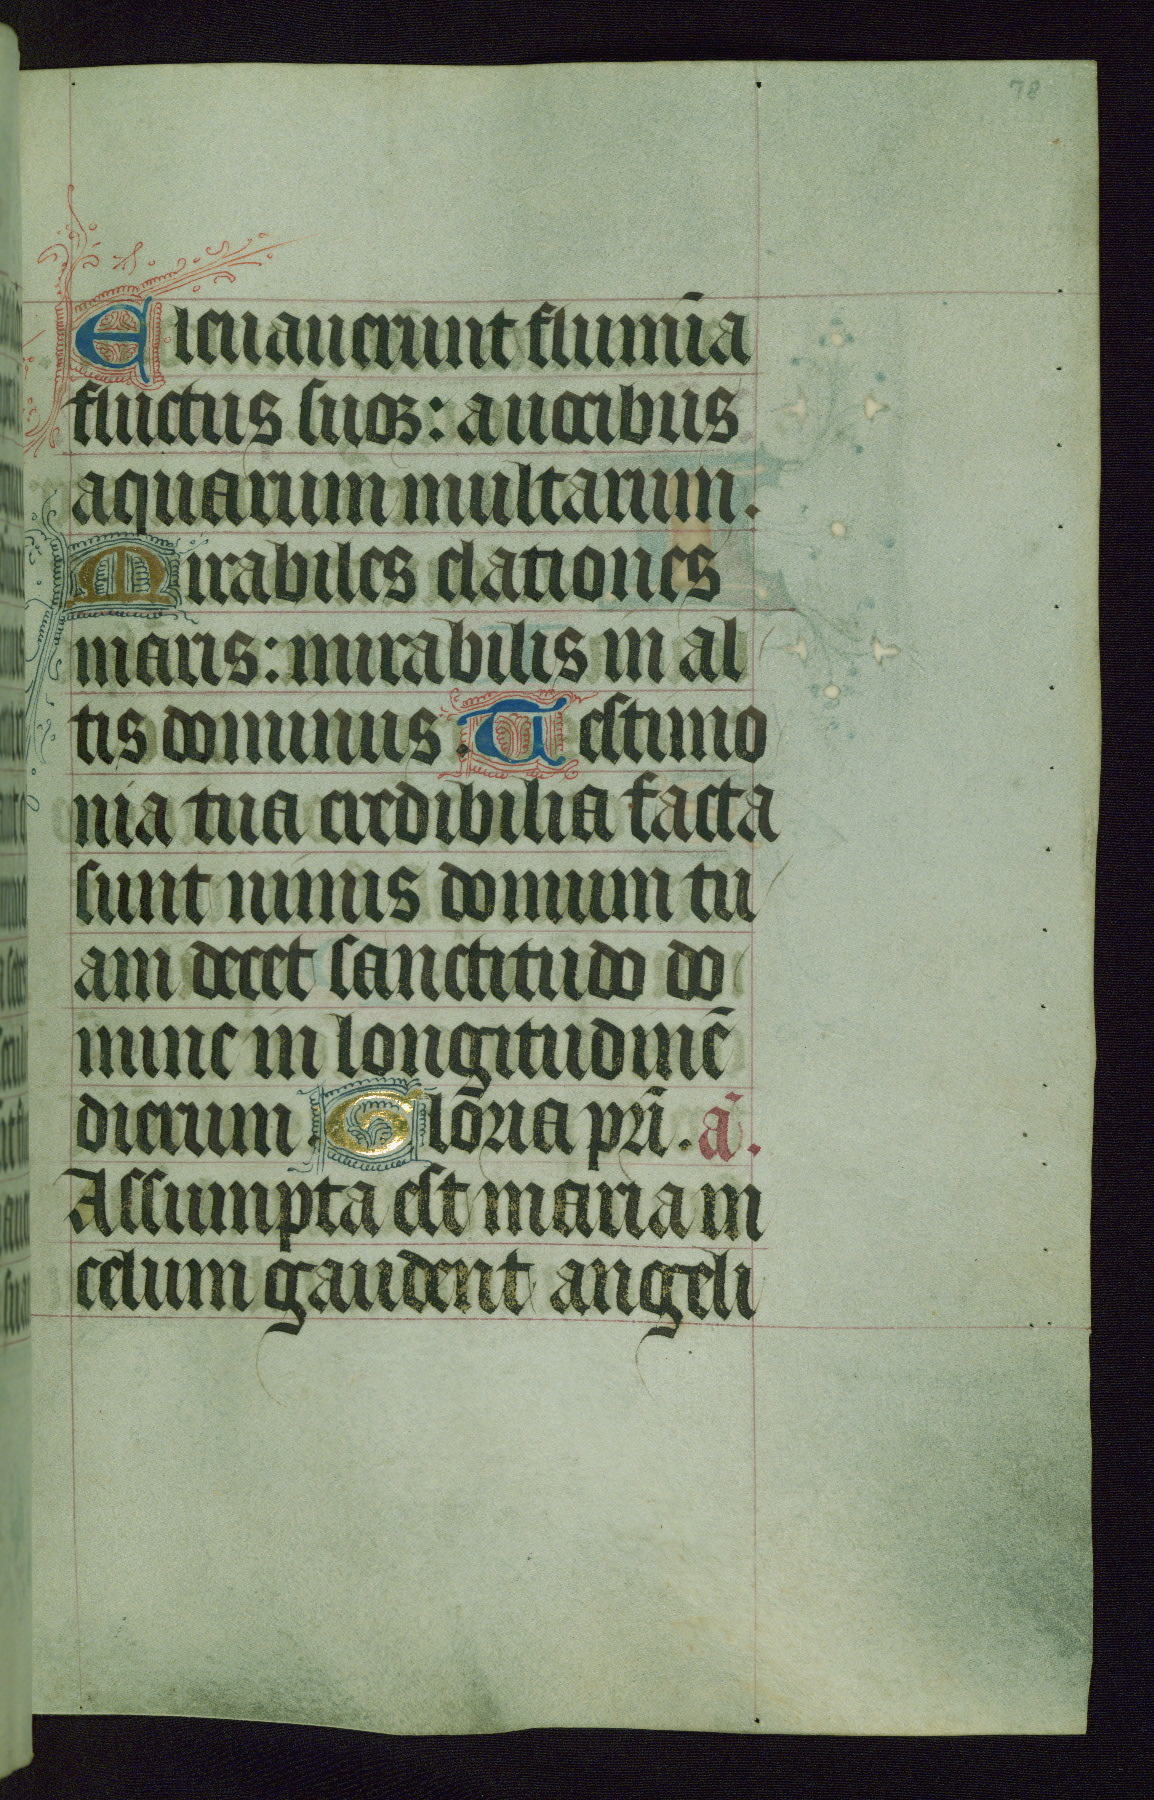 78
Eleuauerunt flumīa
fluctus suos: a uocibus
aquarum multarum.
Mirabiles elationes
maris: mirabilis in al
tis dominus. Testimo
nia tua credibilia facta
sunt nimis domum tu
am decet sanctitudo do
mine in longitudinē
dierum. Glōria pr̄i. ā.
Assumpta est maria in
celum gaudent angeli